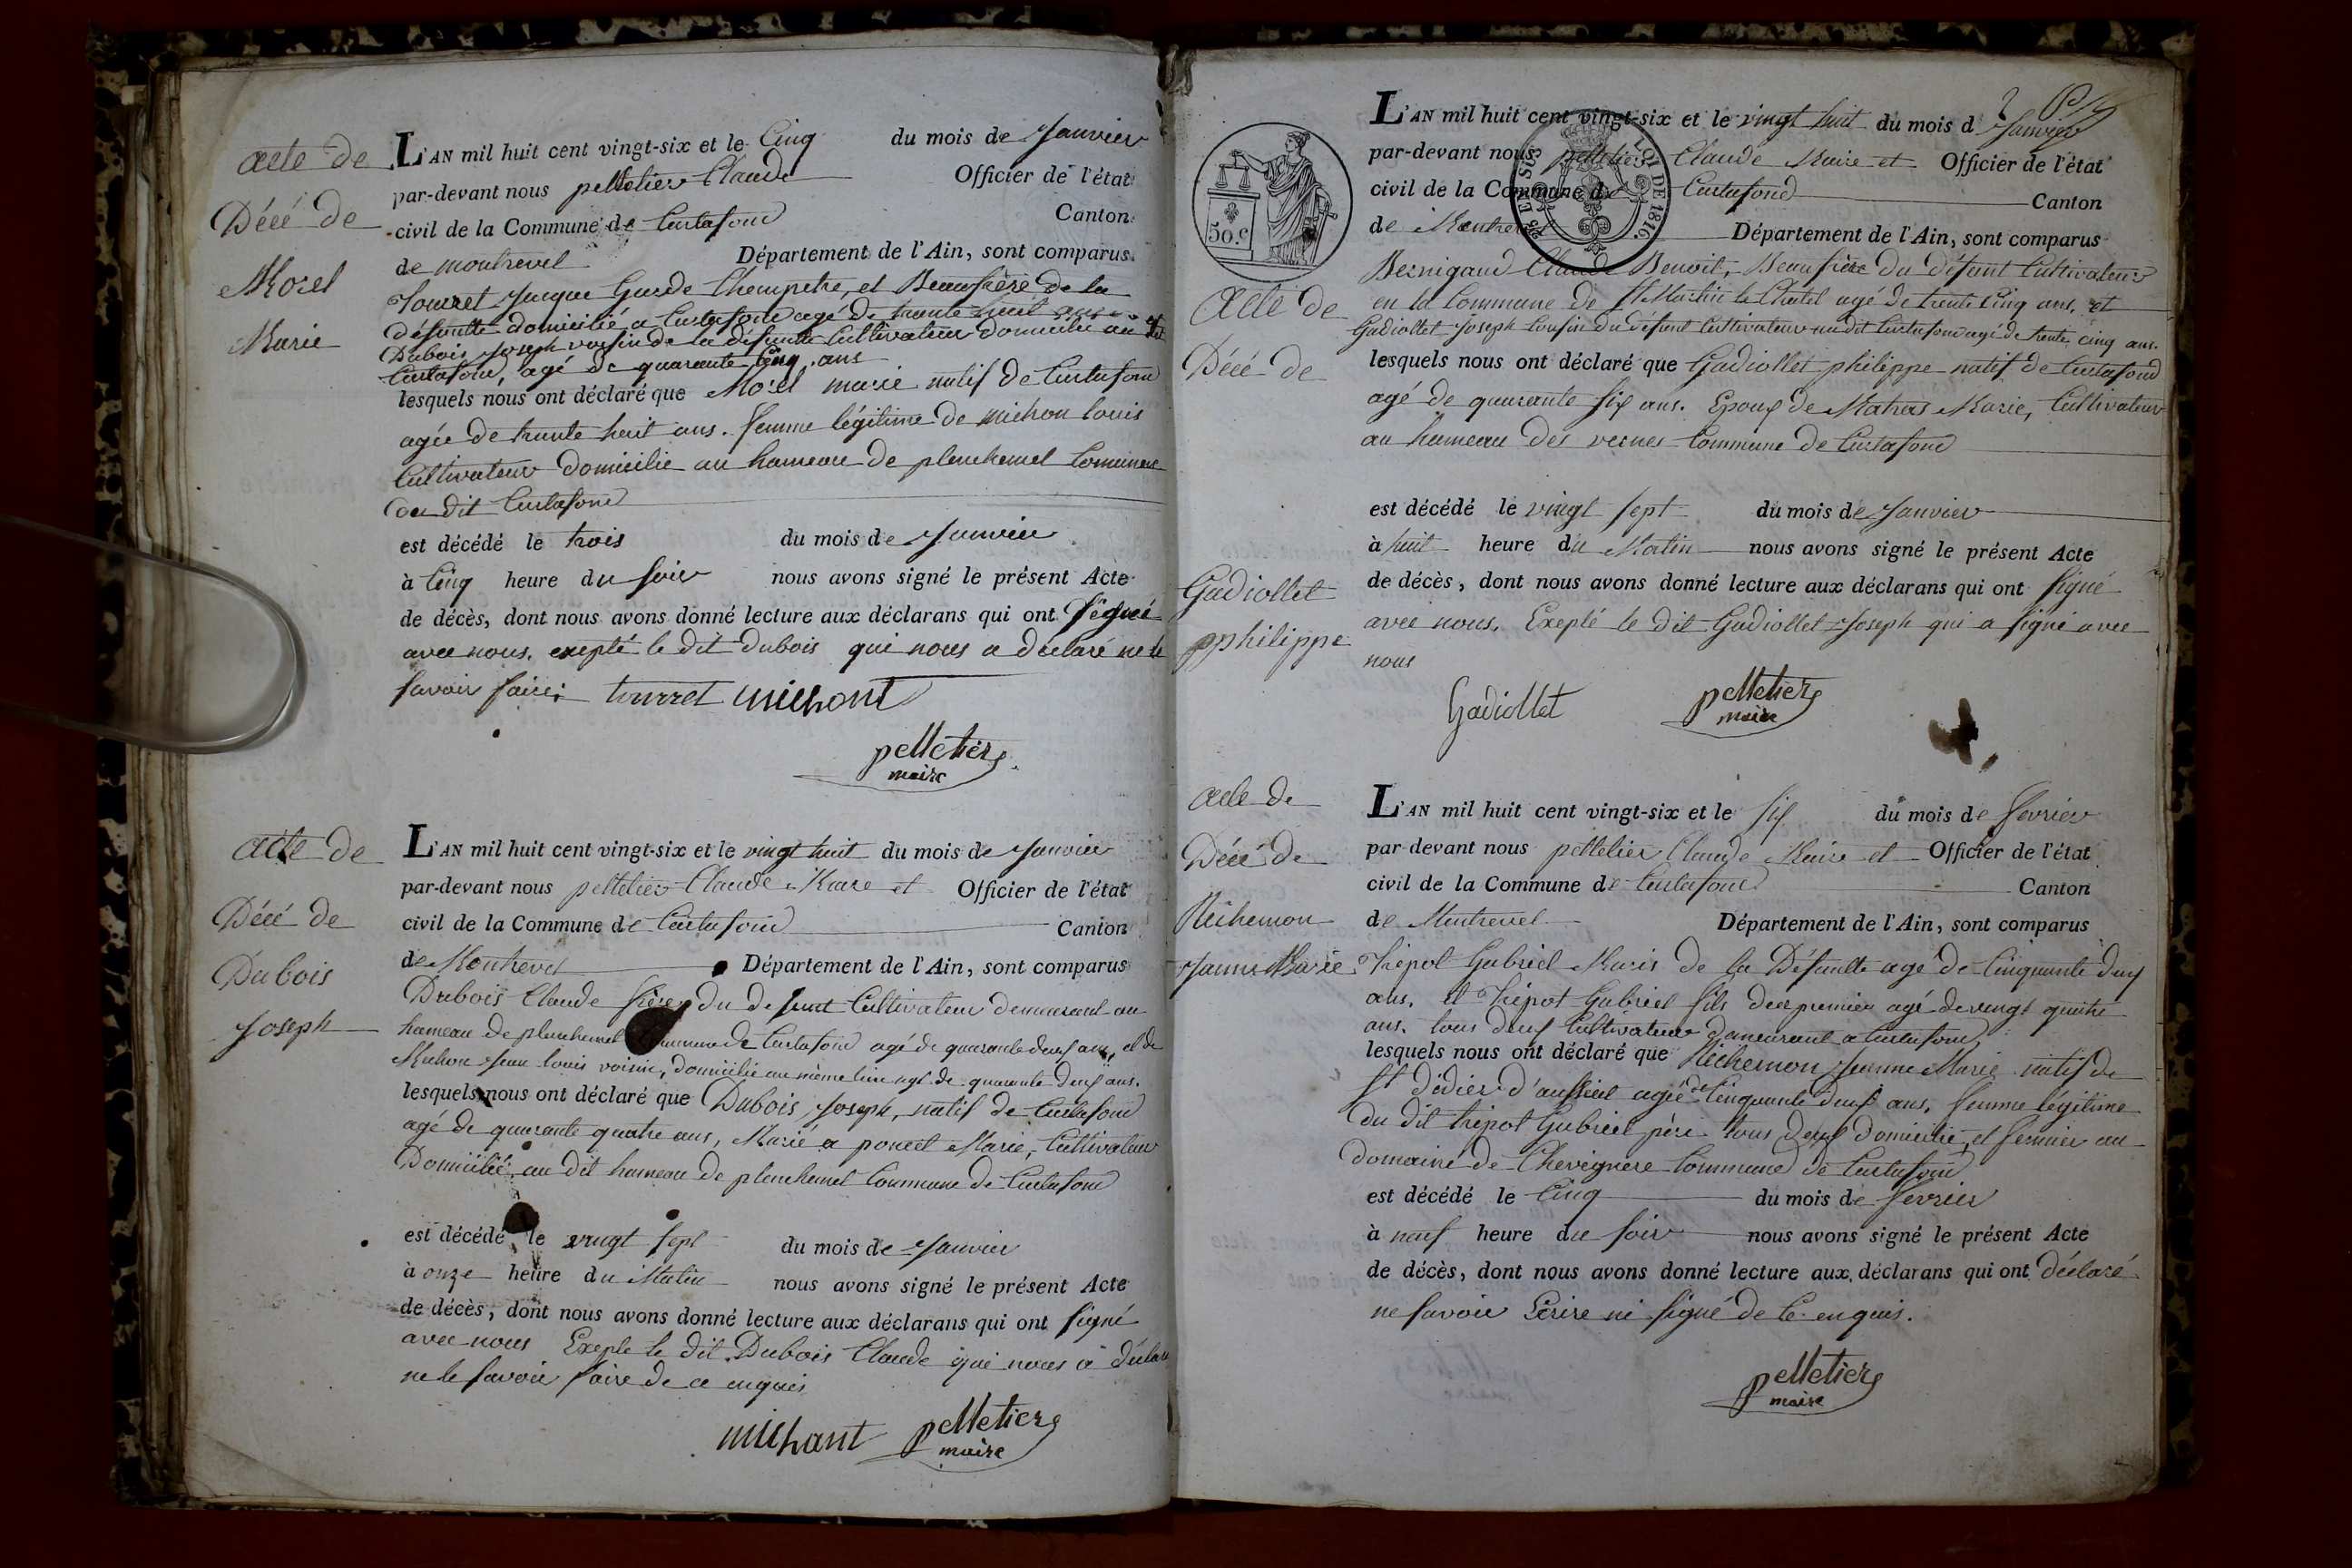 acte de
Décé de
Morel
Marie
L'AN mil huit cent vingt-six et le Cinq du mois de Janvier
par-devant nous pelletier Claude Officier de l'état
civil de la Commune de Curtafond Canton
de montrevel Département de l'Ain, sont comparus
Tourret Jacque Garde Champetre, et Beaufrère de la
défunte domicilié a Curtafond agé de trente huit ans
Dubois Joseph voisin de la défunte Cultivateur domicilié au dit
Curtafond, agé de quarante Cinq ans
lesquels nous ont déclaré que Morel marie natif de Curtafond
agée de trente huit ans. femme légitime de michon louis
Cultivateur domicilié au hameau de planchemel Commune
du dit Curtafond
est décédé le trois du mois de Janvier
à Cinq heure du soir nous avons signé le présent Acte
de décès, dont nous avons donné lecture aux déclarans qui ont signé
avec nous. exepté le dit Dubois qui nous a déclaré ne le
savoir faire. tourret michont
pelletier
maire
acte de
Décé de
Dubois
Joseph
L'AN mil huit cent vingt-six et le vingt huit du mois de Janvier
par-devant nous pelletier Claude Maire et Officier de l'état
civil de la Commune de Curtafond Canton
de Montrevel Département de l'Ain, sont comparus
Dubois Claude frère du defunt Cultivateur demeurant au
hameau de planchemel Commune de Curtafond agé de quarante deux ans, et de
Michon Jean louis voisin, domicilié au même lieu agé de quarante deux ans.
lesquels nous ont déclaré que Dubois Joseph, natif de Curtafond
agé de quarante quatre ans, Marié a poncet Marie, Cultivateur
Domicilié au dit hameau de planchemel Commune de Curtafond
est décédé le vingt sept du mois de Janvier
à onze heure du Matin nous avons signé le présent Acte
de décès, dont nous avons donné lecture aux déclarans qui ont signé
avec nous Exepté le dit Dubois Claude qui nous a déclaré
ne le savoir faire de ce enquis
michant pelletier
maire
50.c
LOI DE 1816
Acte de
Décé de
Gadiollet
philippe
L'AN mil huit cent vingt-six et le vingt huit du mois d Janvier
par-devant nous pelletier Claude Maire et Officier de l'état
civil de la Commune de Curtafond Canton
de Montrevel Département de l'Ain, sont comparus
Bernigaud Claude Benoit, Beaufrère du défunt Cultivateur
en la Commune de St Martin le Chatel agé de trente Cinq ans, et
Gadiollet Joseph Cousin du défunt Cultivateur au dit Curtafond agé de trente cinq ans.
lesquels nous ont déclaré que Gadiollet philippe natif de Curtafond
agé de quarante six ans. Epoux de Mahas Marie, Cultivateur
au hameau des vernes Commune de Curtafond
est décédé le vingt sept du mois de Janvier
à huit heure du Matin nous avons signé le présent Acte
de décès, dont nous avons donné lecture aux déclarans qui ont signé
avec nous. Exepté le dit Gadiollet Joseph qui a signé avec
nous
Gadiollet pelletier
maire
acte de
Décé de
Richemon
Jeanne Marie
L'AN mil huit cent vingt-six et le six du mois de fevrier
par devant nous pelletier Claude Maire et Officier de l'état
civil de la Commune de Curtafond Canton
de Montrevel Département de l'Ain, sont comparus
Trépot Gabriel Maris de la Défunte agé de Cinquante deux
ans, et Trépot Gabriel fils du premier agé de vingt quatre
ans. tous deux Cultivateur demeurant a Curtafond
lesquels nous ont déclaré que Richemon Jeanne Marie natif de
St didier d'aussiat agée de Cinquante deux ans, femme légitime
du dit trépot Gabriel père tous deux domicilié, et fermier au
domaine de Chevignere Commune de Curtafond
est décédé le Cinq du mois de fevrier
à neuf heure du soir nous avons signé le présent Acte
de décès, dont nous avons donné lecture aux déclarans qui ont déclaré
ne savoir Ecrire ni signé de Ce enquis.
pelletier
maire